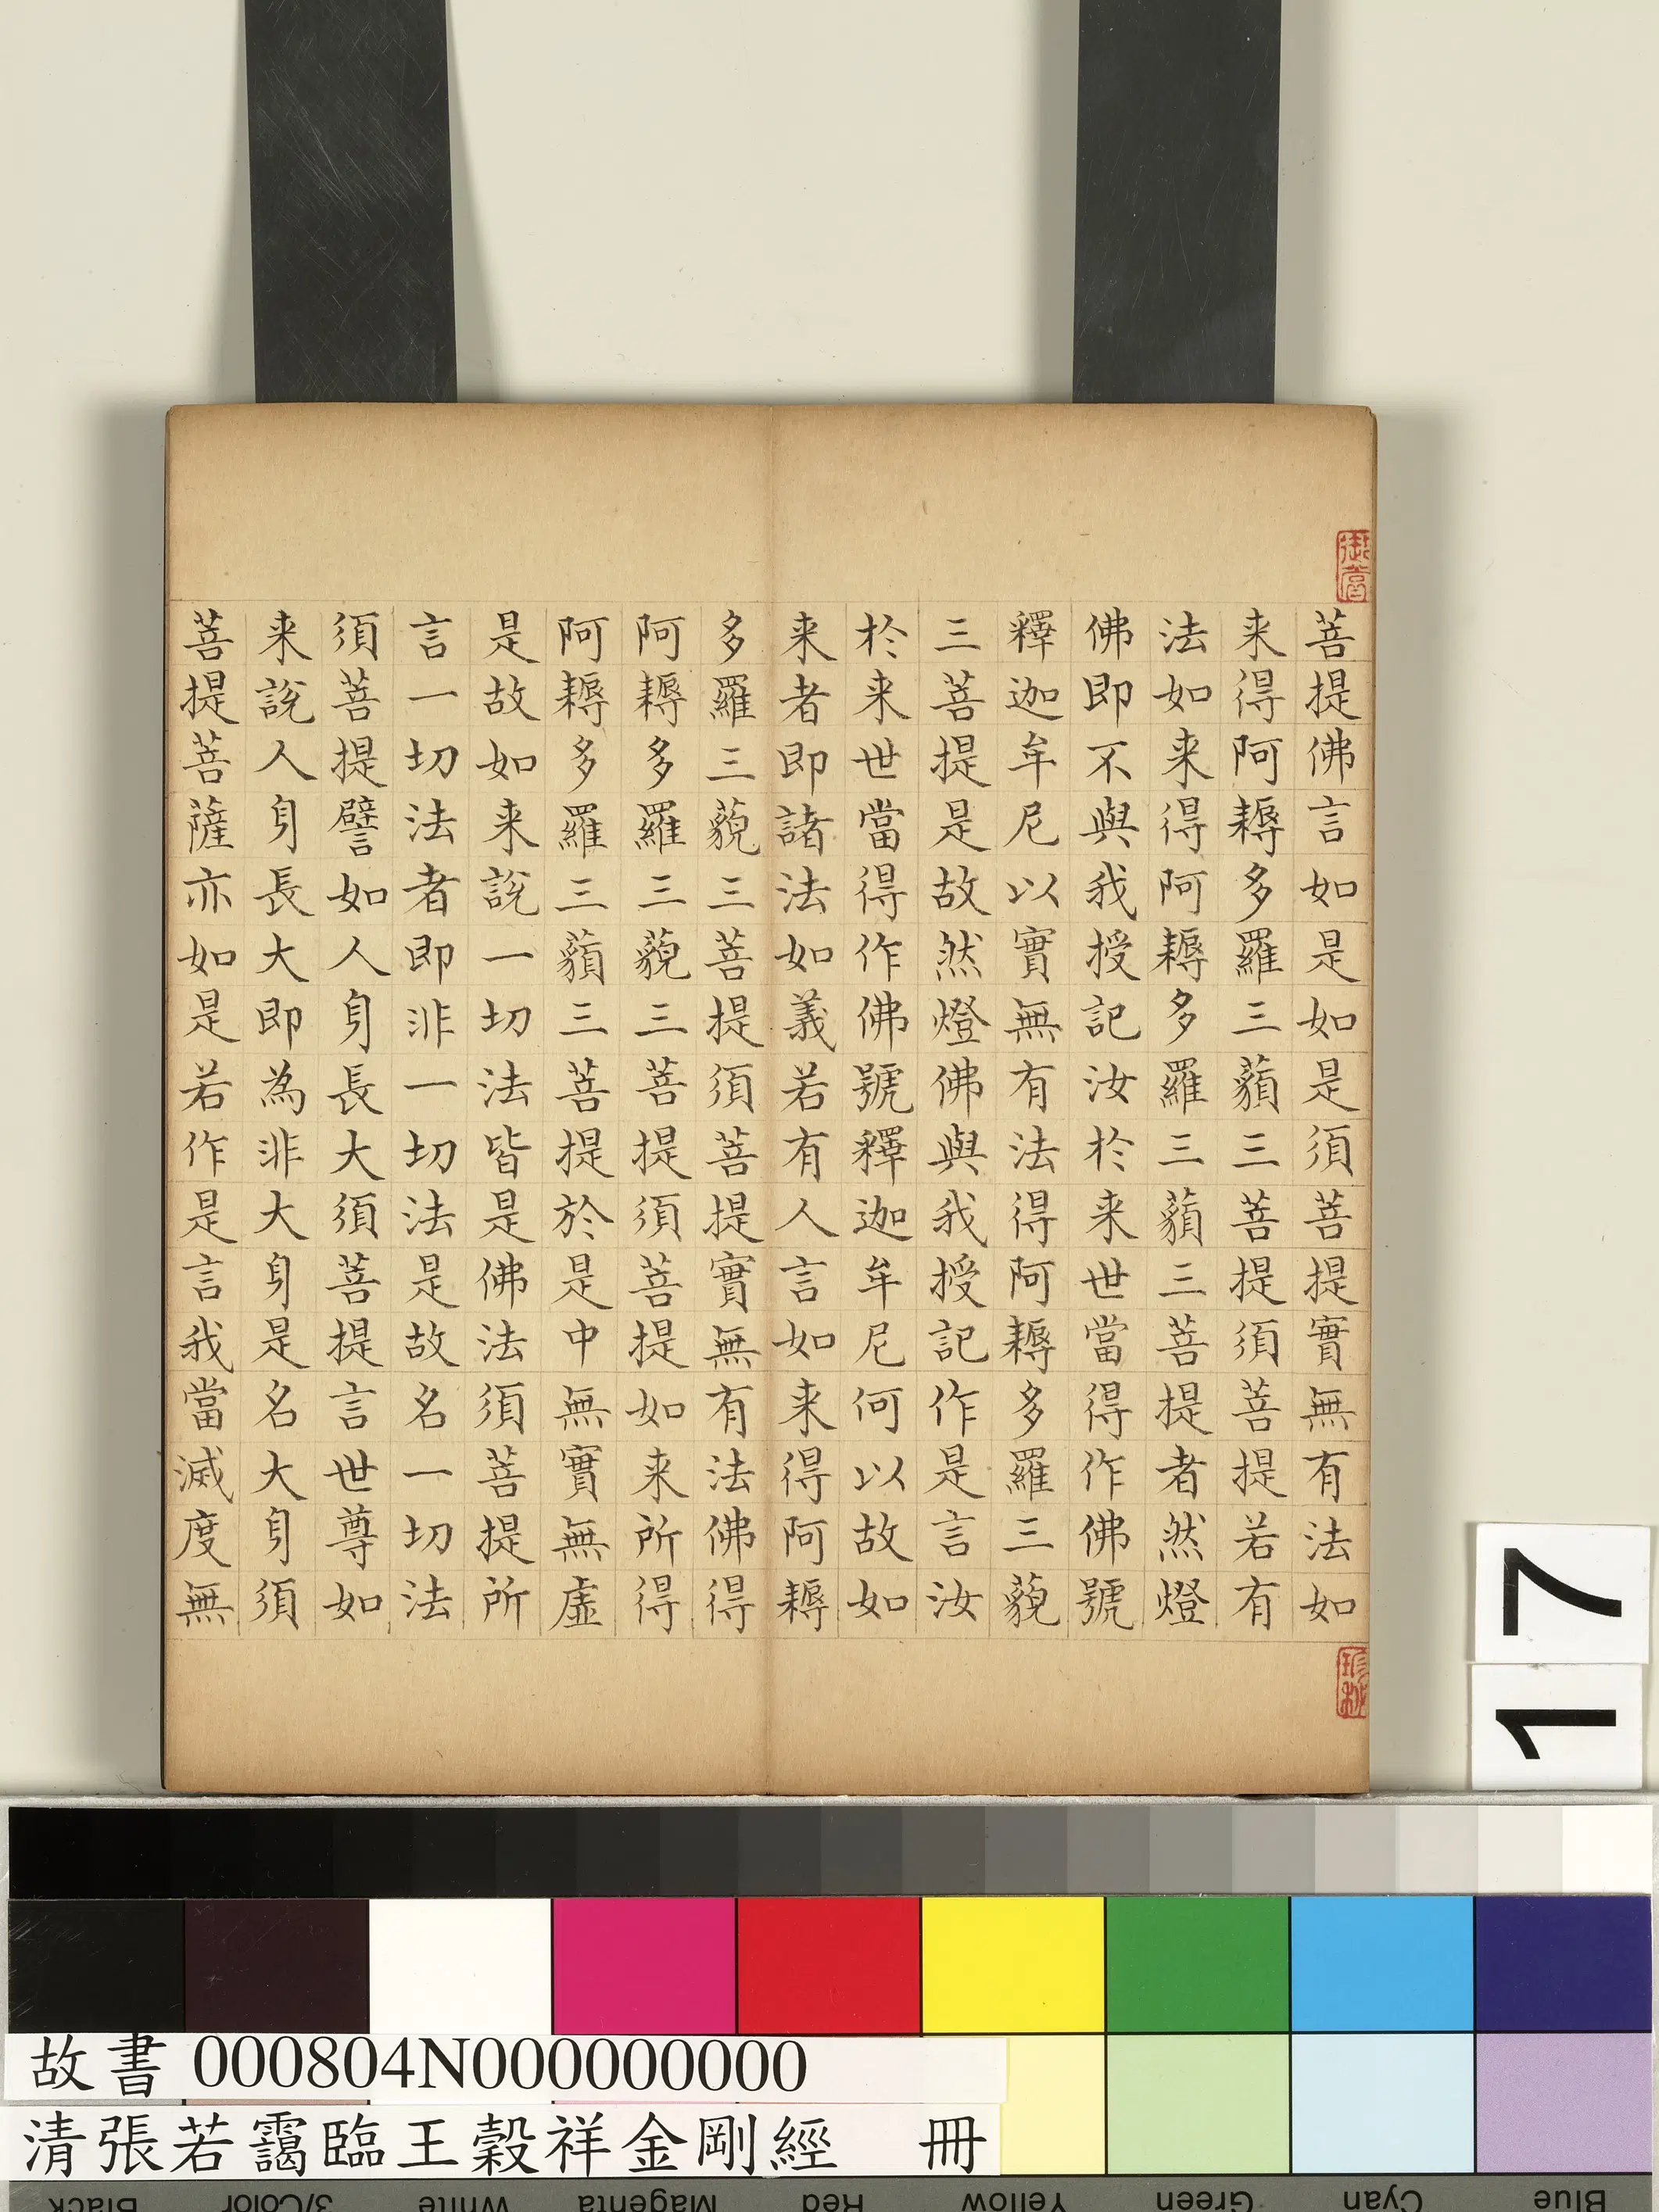 菩提佛言如是如是須菩提實無有法如
来得阿耨多羅三藐三菩提須菩提若有
法如来得阿耨多羅三藐三菩提者然燈
佛即不與我授記汝於来世當得作佛號
釋迦牟尼以實無有法得阿耨多羅三藐
三菩提是故然燈佛與我授記作是言汝
於来世當得作佛號釋迦牟尼何以故如
来者即諸法如義若有人言如来得阿耨
多羅三藐三菩提須菩提實無有法佛得
阿耨多羅三藐三菩提須菩提如来所得
阿耨多羅三藐三菩提於是中無實無虛
是故如来說一切法皆是佛法須菩提所
言一切法者即非一切法是故名一切法
須菩提譬如人身長大須菩提言世尊如
来說人身長大即為非大身是名大身須
菩提菩薩亦如是若作是言我當滅度無
御書
珍祕
17
故書 000804N000000000
清張若靄臨王穀祥金剛經 冊
Black 3/Color White Magenta Red Yellow Green Cyan Blue